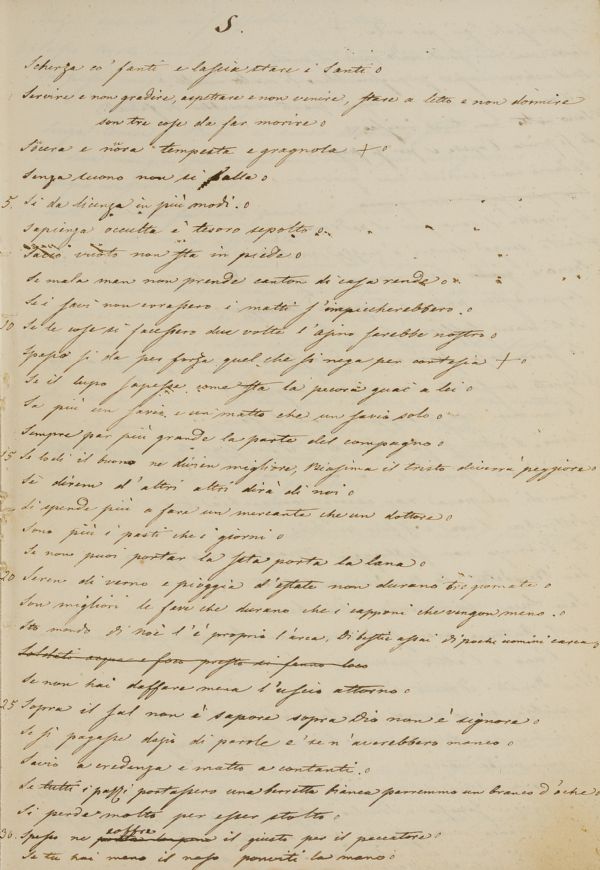 S.
Scherza co' fanti e lascia stare i Santi
Servire e non gradire, aspettare e non venire, stare a letto e non dormire
son tre cose da far morire
Söcra e nöra tempesta e gragnola +
Senza suono non si balla
5. Si da licenza in più modi.
Sapienza occulta è tesoro sepolto
Sacco vuoto non sta in piede
Se mala man non prende canton di casa rende
Se i savi non errassero i matti s'impiccherebbero.
10 Se le cose si facessero due volte l'asino sarebbe nostro
Spesso si da per forza quel che si nega per cortesia +
Se il lupo sapesse come sta la pecora guai a lei
Sa più un savio e un matto che un savio solo
Sempre par più grande la parte del compagno
15 Se lodi il buono ne divien migliore, Biasima il tristo diverrà peggiore
Se direm d'altri altri dirà di noi
Si spende più a fare un mercante che un dottore
Sono più i pasti che i giorni
Se non puoi portar la seta porta la lana
20 Seren di verno e pioggia d'estate non durano tre giornate
Son migliori le fave che durano che i capponi che vengon meno.
Sto mondo di noè l'è propria l'arca, Di bestie assai di pochi uomini carca
Soldati acqua e foco presto si fanno loco
Se non hai daffare mena l'uscio attorno
25 Sopra il sal non è sapore sopra Dio non è signore
Se si pagasse dazio di parole e' se n'averebbero manco
Savio a credenza e matto a contanti.
Se tutti i pazzi portassero una berretta bianca parremmo un branco d'oche
Si perde molto per esser stolto
soffre
30. Spesso ne porta la pena il giusto per il peccatore
Se tu hai meno il naso ponviti la mano